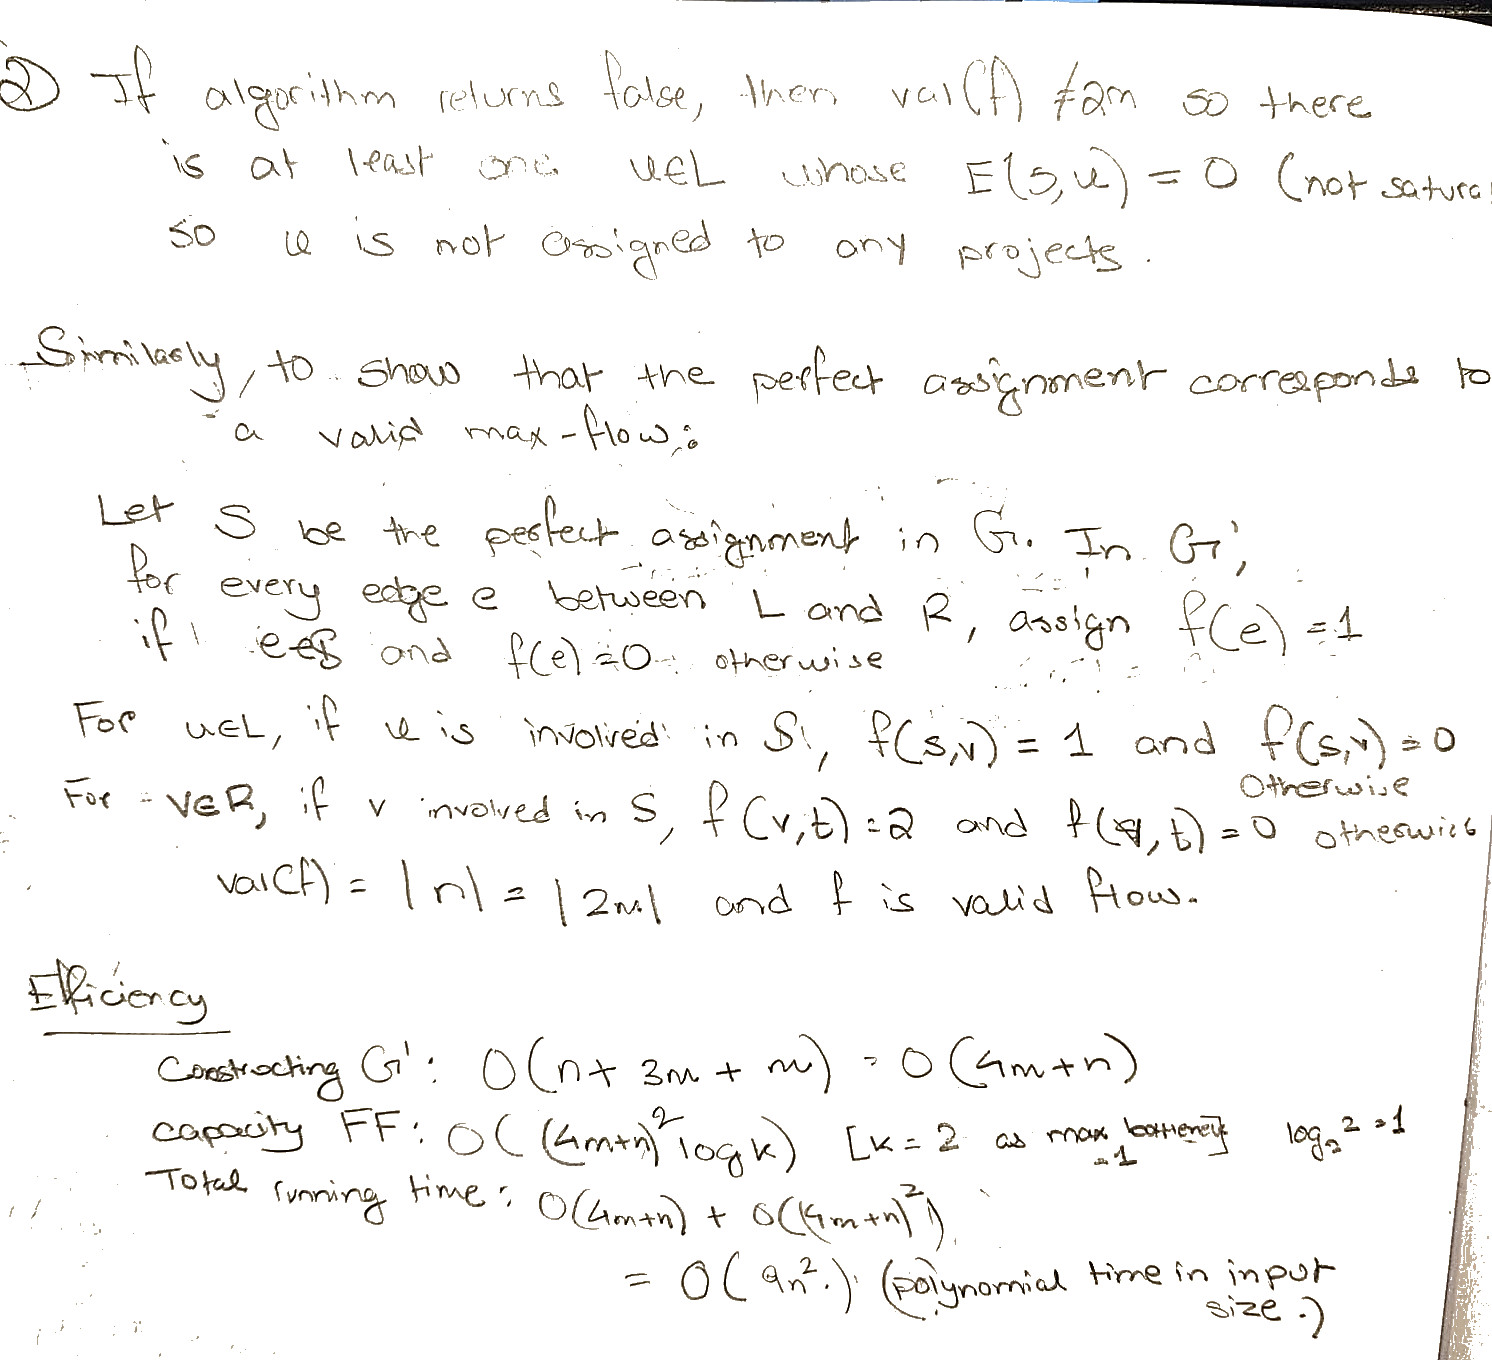 ② If algorithm returns false, then val(f) ≠ 2m so there
is at least one u∈L whose E(s,u) = 0 (not satura
so u is not assigned to any projects.
Similarly, to show that the perfect assignment corresponds to
a valid max-flow:
Let S be the perfect assignment in G. In G',
for every edge e between L and R, assign f(e) = 1
if e∈S and f(e) = 0 otherwise
For u∈L, if u is involved in S, f(s,v) = 1 and f(s,v) = 0
Otherwise
For v∈R, if v involved in S, f(v,t) = 2 and f( ,t) = 0 otherwise
val(f) = |n| = |2m| and f is valid flow.
Efficiency
Constructing G': O(n + 3m + m) = O(4m+n)
capacity FF: O((4m+n)² log k) [k = 2 as max log₂ 2 = 1
= 1
Total running time: O(4m+n) + O((4m+n)²)
= O(9n².) (polynomial time in input
size.)